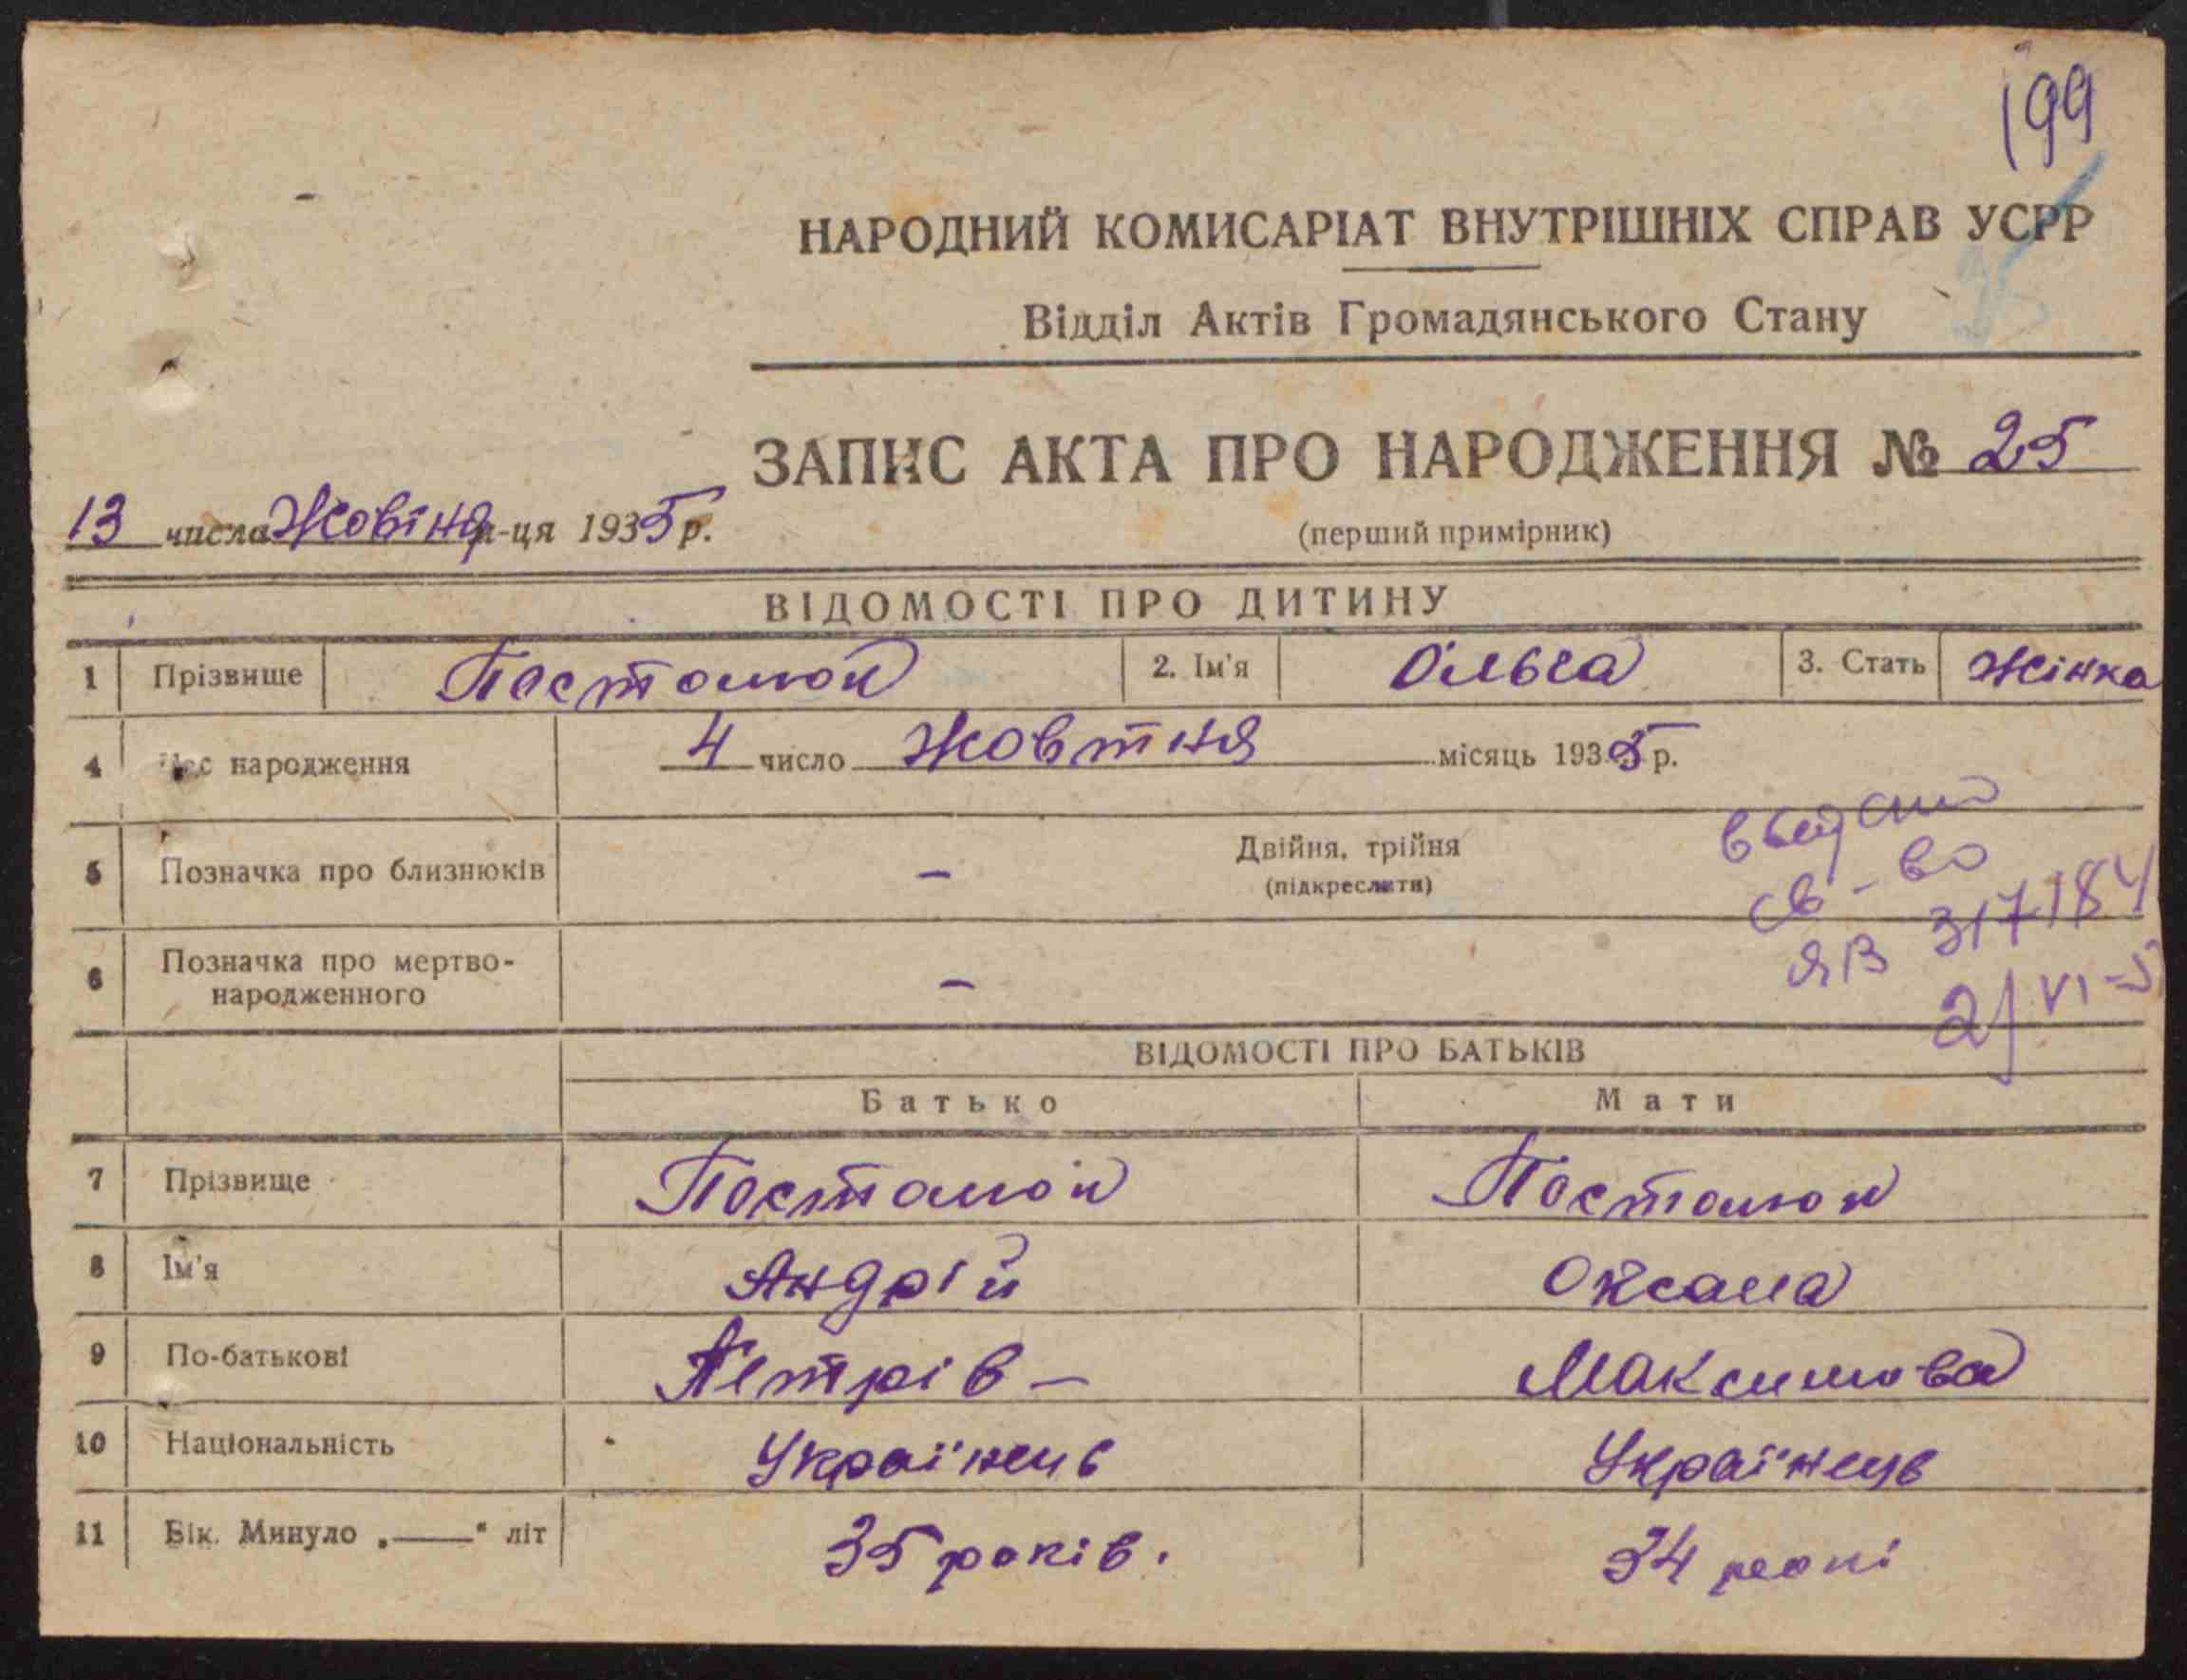 199
НАРОДНИЙ КОМИСАРІАТ ВНУТРІШНІХ СПРАВ УСРР
Відділ Актів Громадянського Стану
ЗАПИС АКТА ПРО НАРОДЖЕННЯ № 25
13 числа Жовтня м-ця 1935 р.
(перший примірник)
ВІДОМОСТІ ПРО ДИТИНУ
1 Прізвище 2. Ім'я Ольга 3. Стать Жінка
4 Час народження 4 число Жовтня місяць 1935 р.
5 Позначка про близнюків – Двійня, трійня
(підкреслити)
выдано
св-во
ЯВ 317184
6 Позначка про мертво-
народженного –
21 VI-5
ВІДОМОСТІ ПРО БАТЬКІВ
Батько Мати
7 Прізвище
8 Ім'я Андрій Оксана
9 По-батькові Петрів – Максимова
10 Національність Українець Українець
11 Вік. Минуло „——“ літ 35 років. 34 рокі